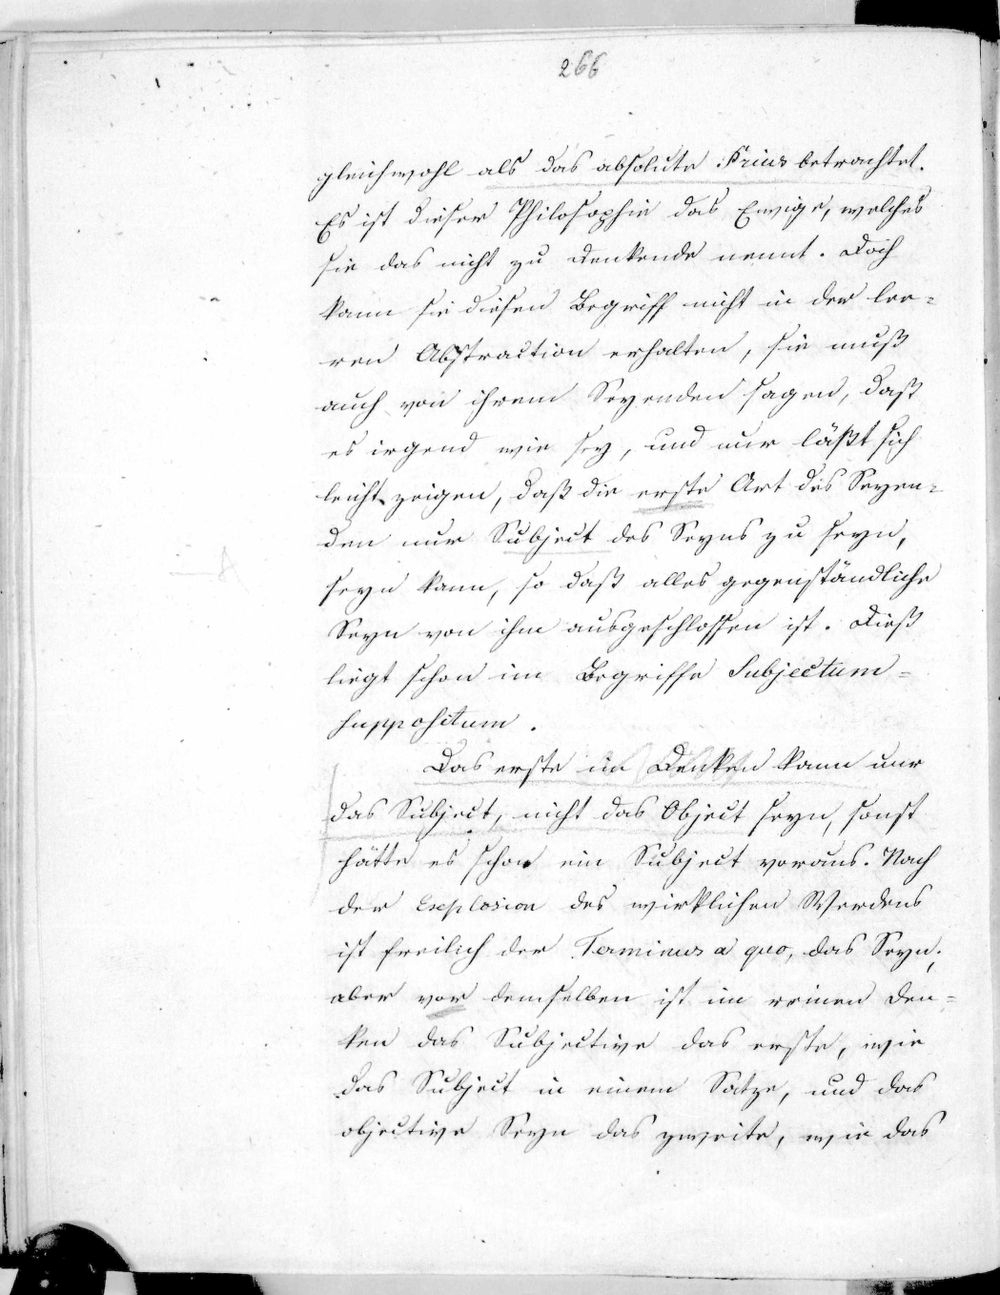 266
gleichwohl als das absolute Prius betrachtet.
Es ist dieser Philosophie das Ewige, welches
sie das nicht zu denkende nennt. Doch
kann sie diesen Begriff nicht in der lee=
ren Abstraction erhalten, sie muß
auch von ihrem Seyenden sagen, daß
es irgend wie sey, und nur läßt sich
leicht zeigen, daß die erste Art des Seyen=
den nur Subject des Seyns zu seyn,
seyn kann, so daß alles gegenständliche
Seyn von ihm ausgeschlossen ist. Dieß
liegt schon im Begriffe Subjectum=
suppositum.
Das erste im Denken kann nur
das Subject, nicht das Object seyn, sonst
hätte es schon ein Subject voraus. Nach
der Explosion des wirklichen Werdens
ist freilich der Terminus a quo, das Seyn;
aber vor demselben ist im reinen Den=
ken das Subjective das erste, wie
das Subject in einem Satze, und das
objective Seyn das zweite, wie das